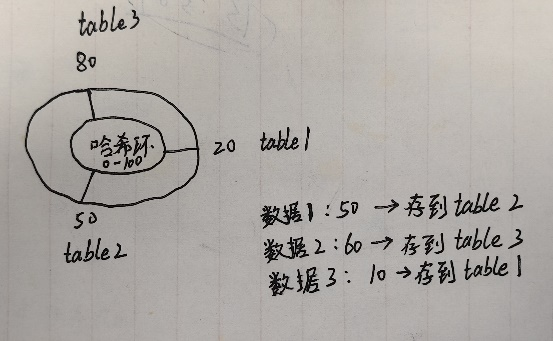 table3
80
哈希环
0-100
20 table1
50
table2
数据1:50 →存到table 2
数据2:60→ 存到table 3
数据3: 10→存到table 1